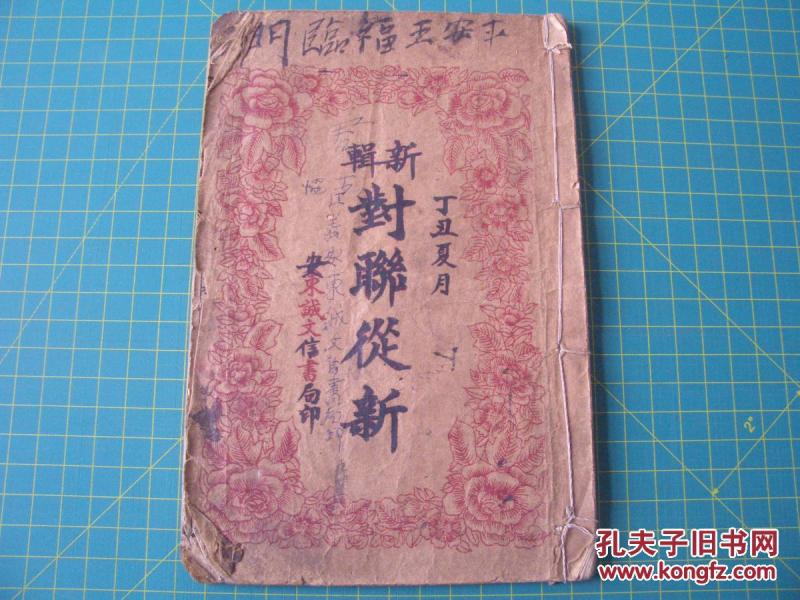 平安五福臨門
丁丑夏月
新輯
對聯從新
安東誠文信書局印
孔夫子旧书网
www.kongfz.com